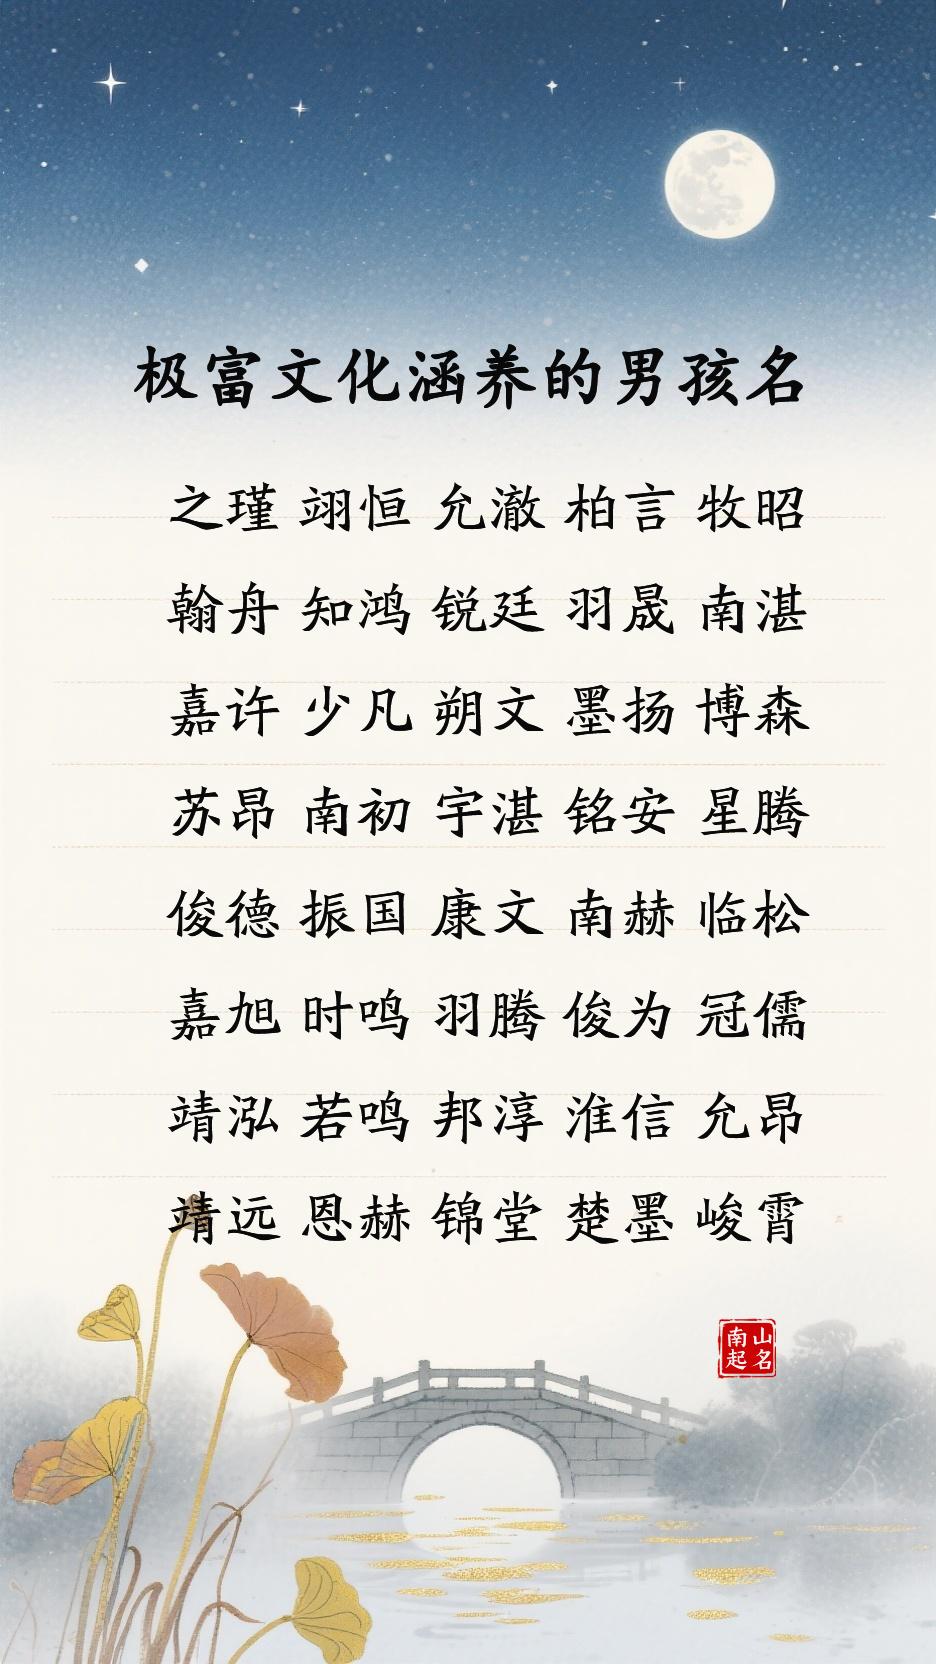 极富文化涵养的男孩名
之瑾 翊恒 允澈 柏言 牧昭
翰舟 知鸿 锐廷 羽晟 南湛
嘉许 少凡 朔文 墨扬 博森
苏昂 南初 宇湛 铭安 星腾
俊德 振国 康文 南赫 临松
嘉旭 时鸣 羽腾 俊为 冠儒
靖泓 若鸣 邦淳 淮信 允昂
靖远 恩赫 锦堂 楚墨 峻霄
南山
起名